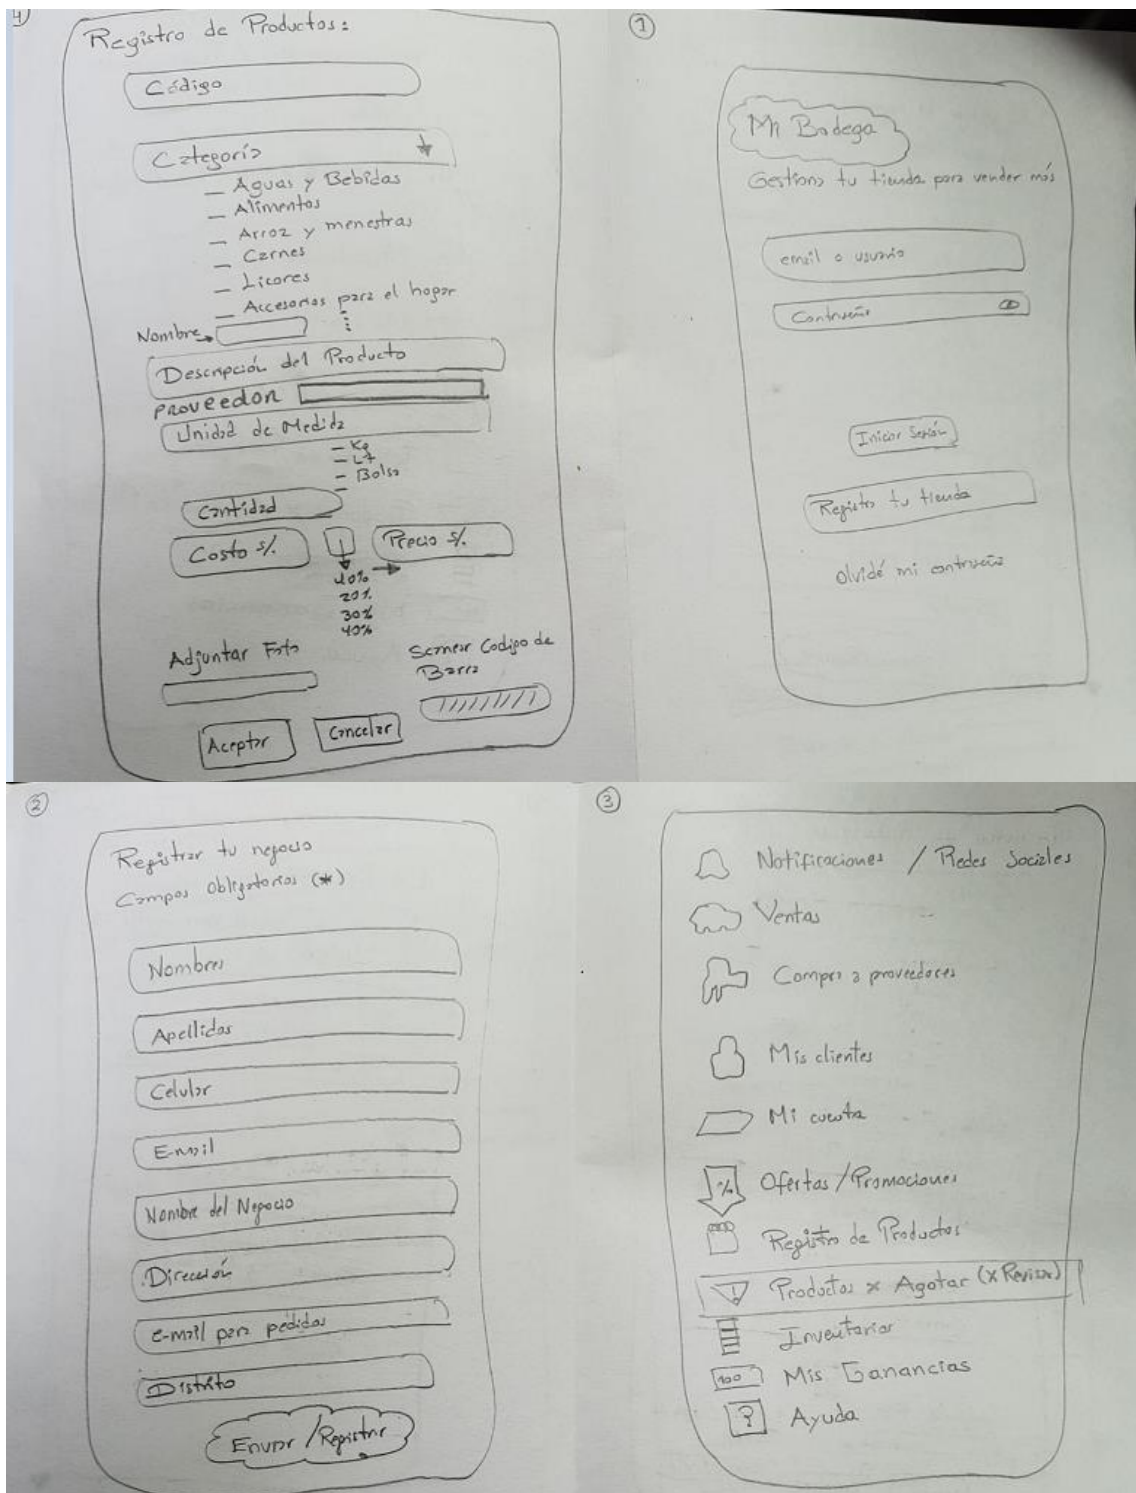 4)
Registro de Productos:
Código
Categoría
— Aguas y Bebidas
— Alimentos
— Arroz y menestras
— Carnes
— Licores
— Accesorios para el hogar
Nombre
Descripción del Producto
PROVEEDOR
Unidad de Medida
— Kg
— Lt
— Bolsa
Cantidad
Costo s/.
Precio s/.
10%
20%
30%
40%
Adjuntar Foto
Scanear Codigo de
Barra
Aceptar
Cancelar
1
Mi Bodega
Gestiona tu tienda para vender más
email o usuario
Contraseña
Iniciar Sesión
Registra tu tienda
Olvidé mi contraseña
2
Registrar tu negocio
Campos Obligatorios (*)
Nombres
Apellidos
Celular
E-mail
Nombre del Negocio
Dirección
e-mail para pedidos
Distrito
Enviar / Registrar
3
Notificaciones / Redes Sociales
Ventas
Compra a proveedores
Mis clientes
Mi cuenta
% Ofertas / Promociones
Registro de Productos
! Productos x Agotar (x Revisar)
Inventarios
100 Mis Ganancias
? Ayuda